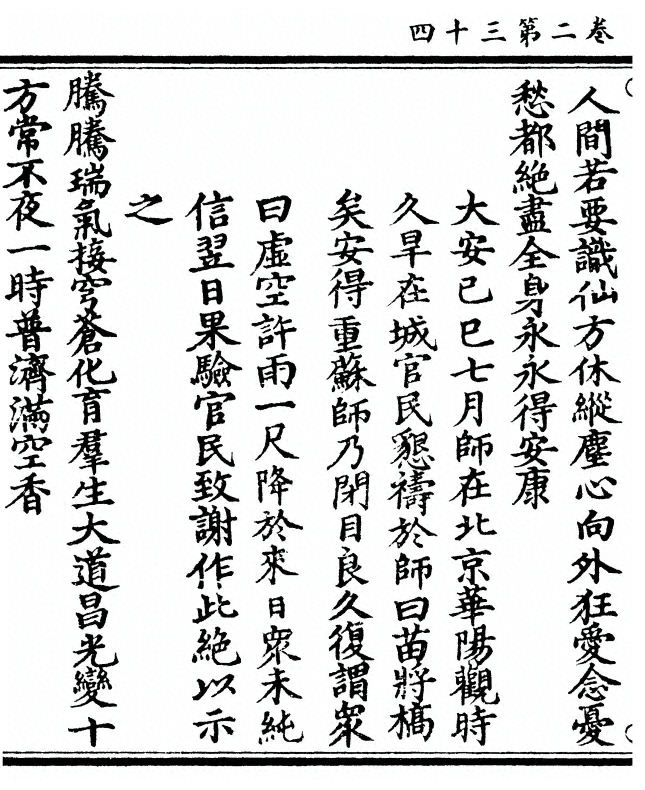 卷二第三十四
人間若要識仙方休縱塵心向外狂愛念憂
愁都絕盡全身永永得安康
大安己巳七月師在北京華陽觀時
久旱在城官民懇禱於師曰苗將槁
矣安得重蘇師乃閉目良久復謂衆
曰虛空許雨一尺降於來日衆未純
信翌日果驗官民致謝作此絕以示
之
騰騰瑞氣接穹蒼化育羣生大道昌光變十
方常不夜一時普濟滿空香